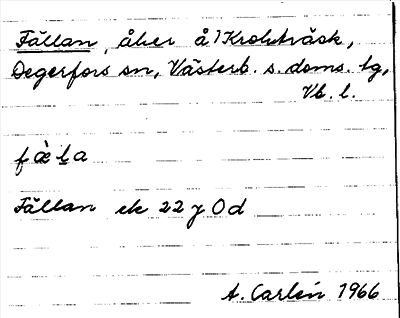 Fällan, åker å Krokträsk,
Degerfors sn, Västerb. s. doms. tg,
Vb. l.
fǟ̀ḻa
Fällan ek 22 y Od
A. Carlén 1966